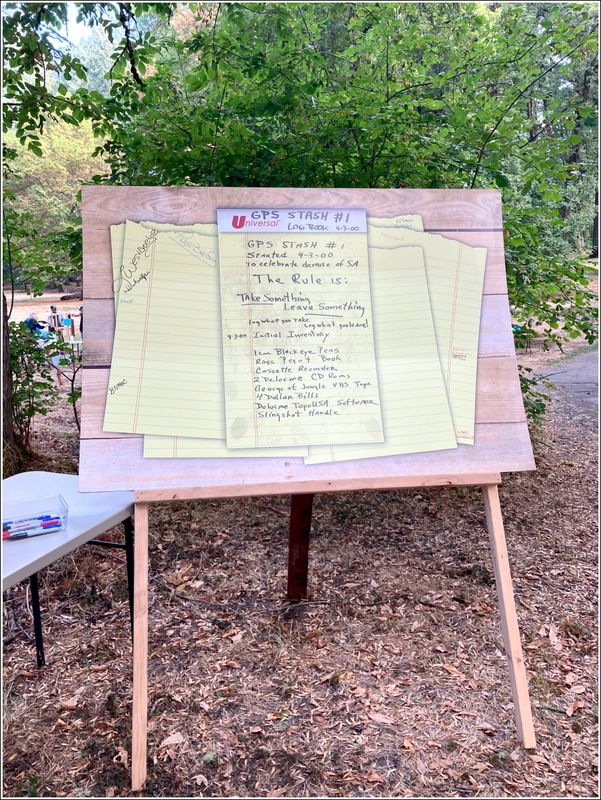 GPS STASH #1
Universal
LOG BOOK 4-3-00
GPS STASH #1
Started 4-3-00
to celebrate demise of SA
The Rule is:
Take Something
Leave Something
log what you Take
Log what you leave!
4-3-00 Initial Inventory
1 can Black eye Peas
Ross Perot Book
Cassette Recorder
2 Delorme CD Roms
George of Jungle VHS Tape
4 Dollar Bills
Delorme TopoUSA Software
Slingshot Handle